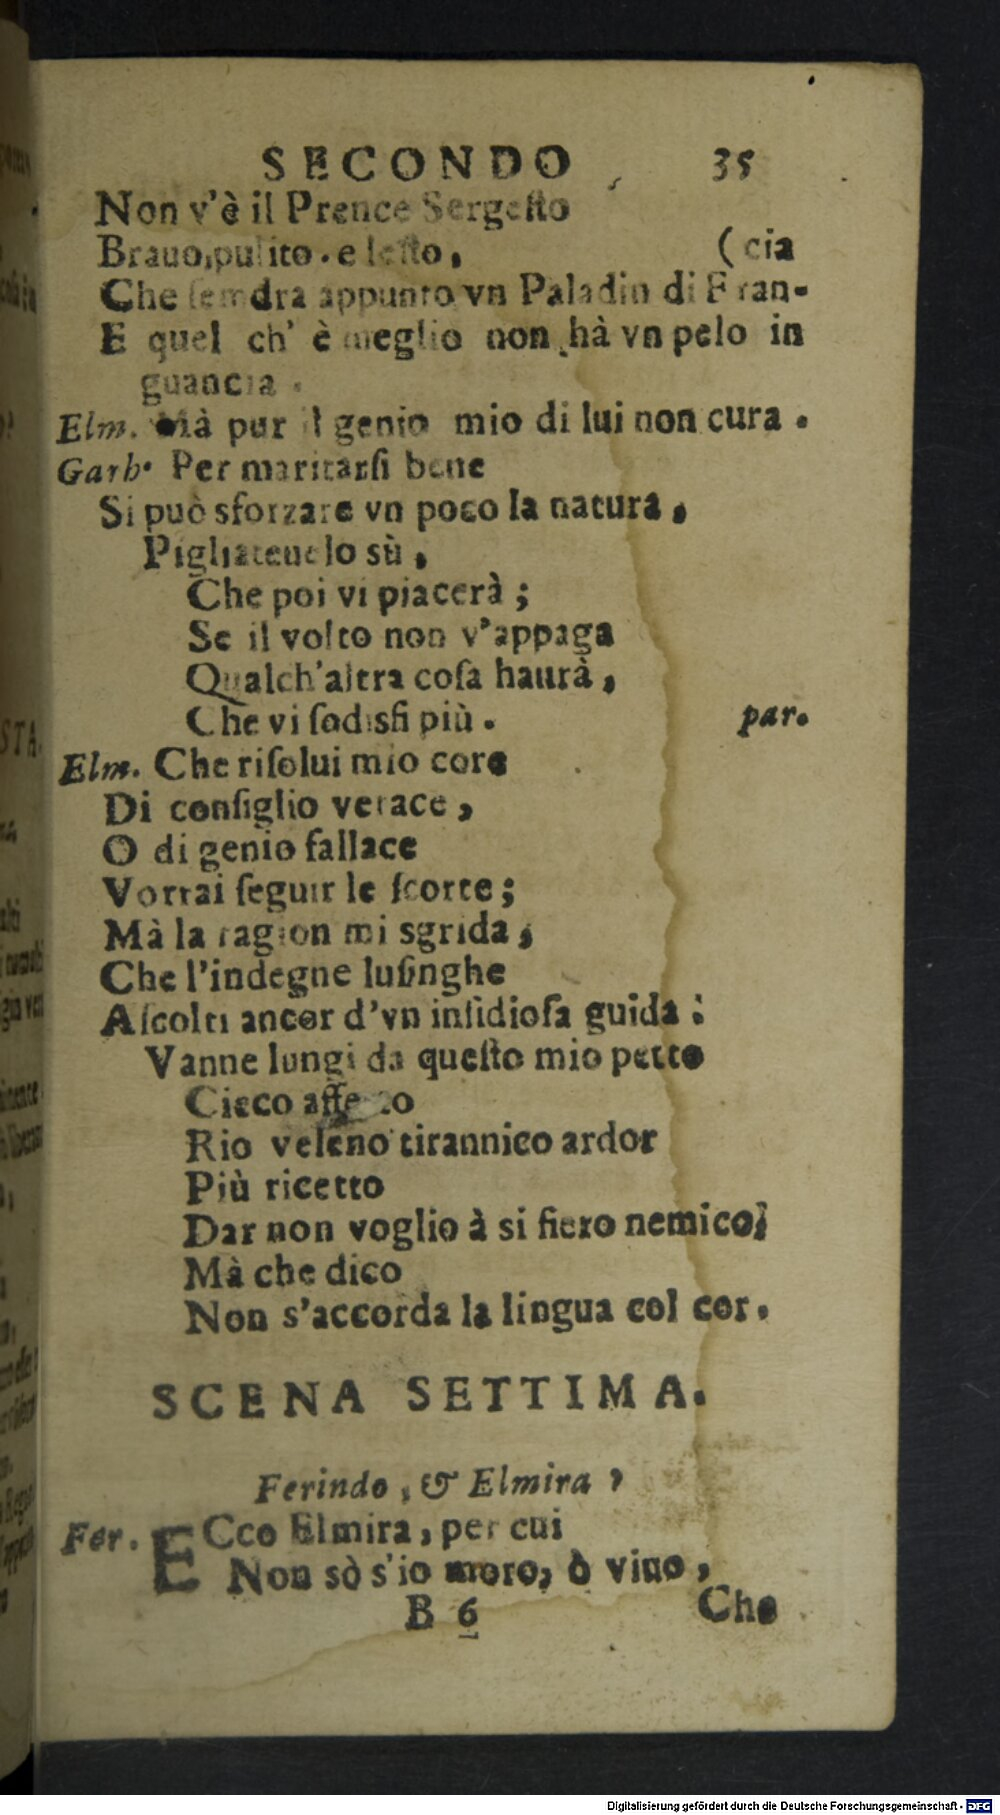 SECONDO 35
Non v'è il Prence Sergeſto
Brauo, pulito. e leſto, (cia
Che ſemdra appunto vn Paladin di Fran-
E quel ch' è meglio non hà vn pelo in
guancia.
Elm. Mà pur il genio mio di lui non cura.
Garb. Per maritarſi bene
Si può sforzare vn poco la natura,
Pigliateuelo sù,
Che poi vi piacerà;
Se il volto non v'appaga
Qualch'altra coſa haurà,
Che vi ſodisfi più. par.
Elm. Che riſolui mio core
Di conſiglio verace,
O di genio fallace
Vorrai ſeguir le ſcorte;
Mà la ragion mi sgrida,
Che l'indegne luſinghe
Aſcolti ancor d'vn inſidioſa guida:
Vanne lungi da queſto mio petto
Cieco affetto
Rio veleno tirannico ardor
Più ricetto
Dar non voglio à si fiero nemico;
Mà che dico
Non s'accorda la lingua col cor.
SCENA SETTIMA.
Ferindo, & Elmira,
Fer. ECco Elmira, per cui
Non sò s'io moro, ò viuo,
B 6 Che
Digitalisierung gefördert durch die Deutsche Forschungsgemeinschaft - DFG